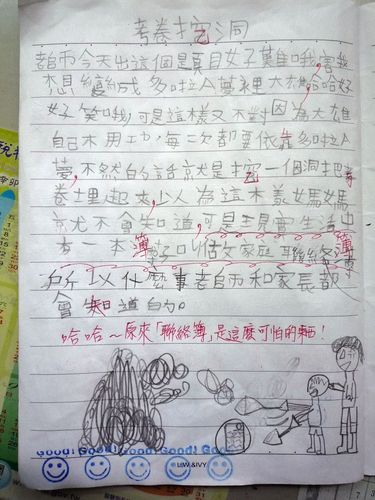 考卷挖洞
老師今天出這個題目好難哦,害我
想變成多啦A夢裡大雄,哈哈好
好笑哦,可是這樣又不對因為大雄
自己不用功,每一次都要依靠多啦A
夢,不然的話就是挖一個洞把考
卷埋起來,以為這不義媽媽
就不會知道,可是現實生活中
有一本簿子叫做家庭聯絡簿
所以什麼事老師和家長都
會知道的。
哈哈~原來「聯絡簿」是這麼可怕的東西!
Good! Good! Good! Good! Go
LIW &IVY